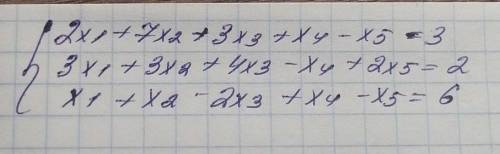 2x1 + 7x2 + 3x3 + x4 - x5 = 3
3x1 + 3x2 + 4x3 - x4 + 2x5 = 2
x1 + x2 - 2x3 + x4 - x5 = 6